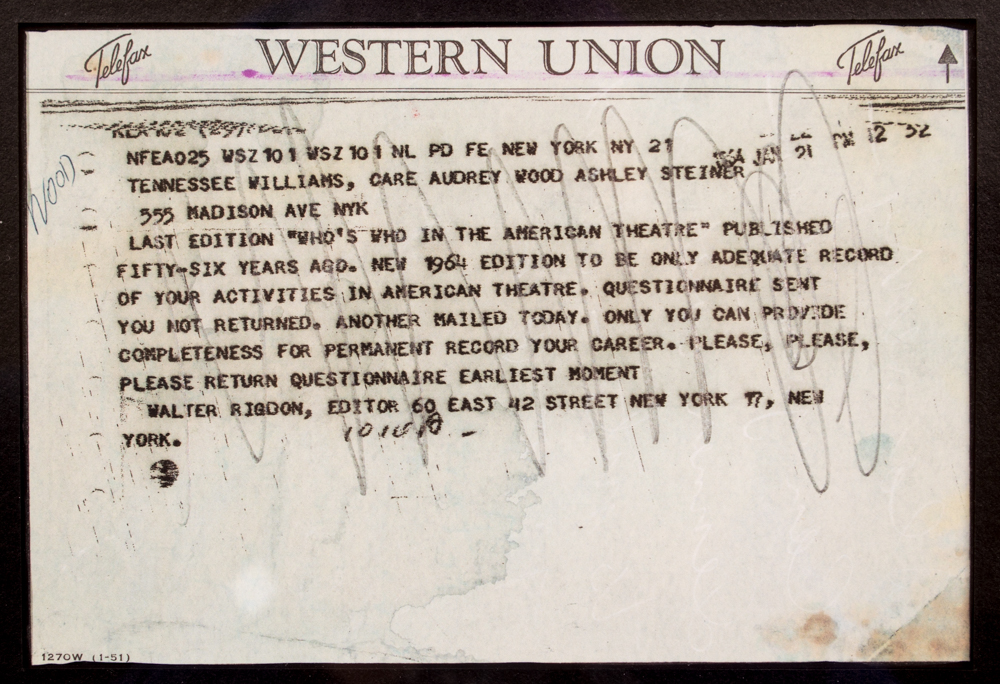 Telefax WESTERN UNION Telefax
NFEA025 WSZ101 WSZ101 NL PD FE NEW YORK NY 21
1964 JAN 21 PM 12 32
TENNESSEE WILLIAMS, CARE AUDREY WOOD ASHLEY STEINER
555 MADISON AVE NYK
LAST EDITION "WHO'S WHO IN THE AMERICAN THEATRE" PUBLISHED
FIFTY-SIX YEARS AGO. NEW 1964 EDITION TO BE ONLY ADEQUATE RECORD
OF YOUR ACTIVITIES IN AMERICAN THEATRE. QUESTIONNAIRE SENT
YOU NOT RETURNED. ANOTHER MAILED TODAY. ONLY YOU CAN PROVIDE
COMPLETENESS FOR PERMANENT RECORD YOUR CAREER. PLEASE, PLEASE,
PLEASE RETURN QUESTIONNAIRE EARLIEST MOMENT
WALTER RIGDON, EDITOR 60 EAST 42 STREET NEW YORK 17, NEW
YORK.
WOOD
1270W (1-51)